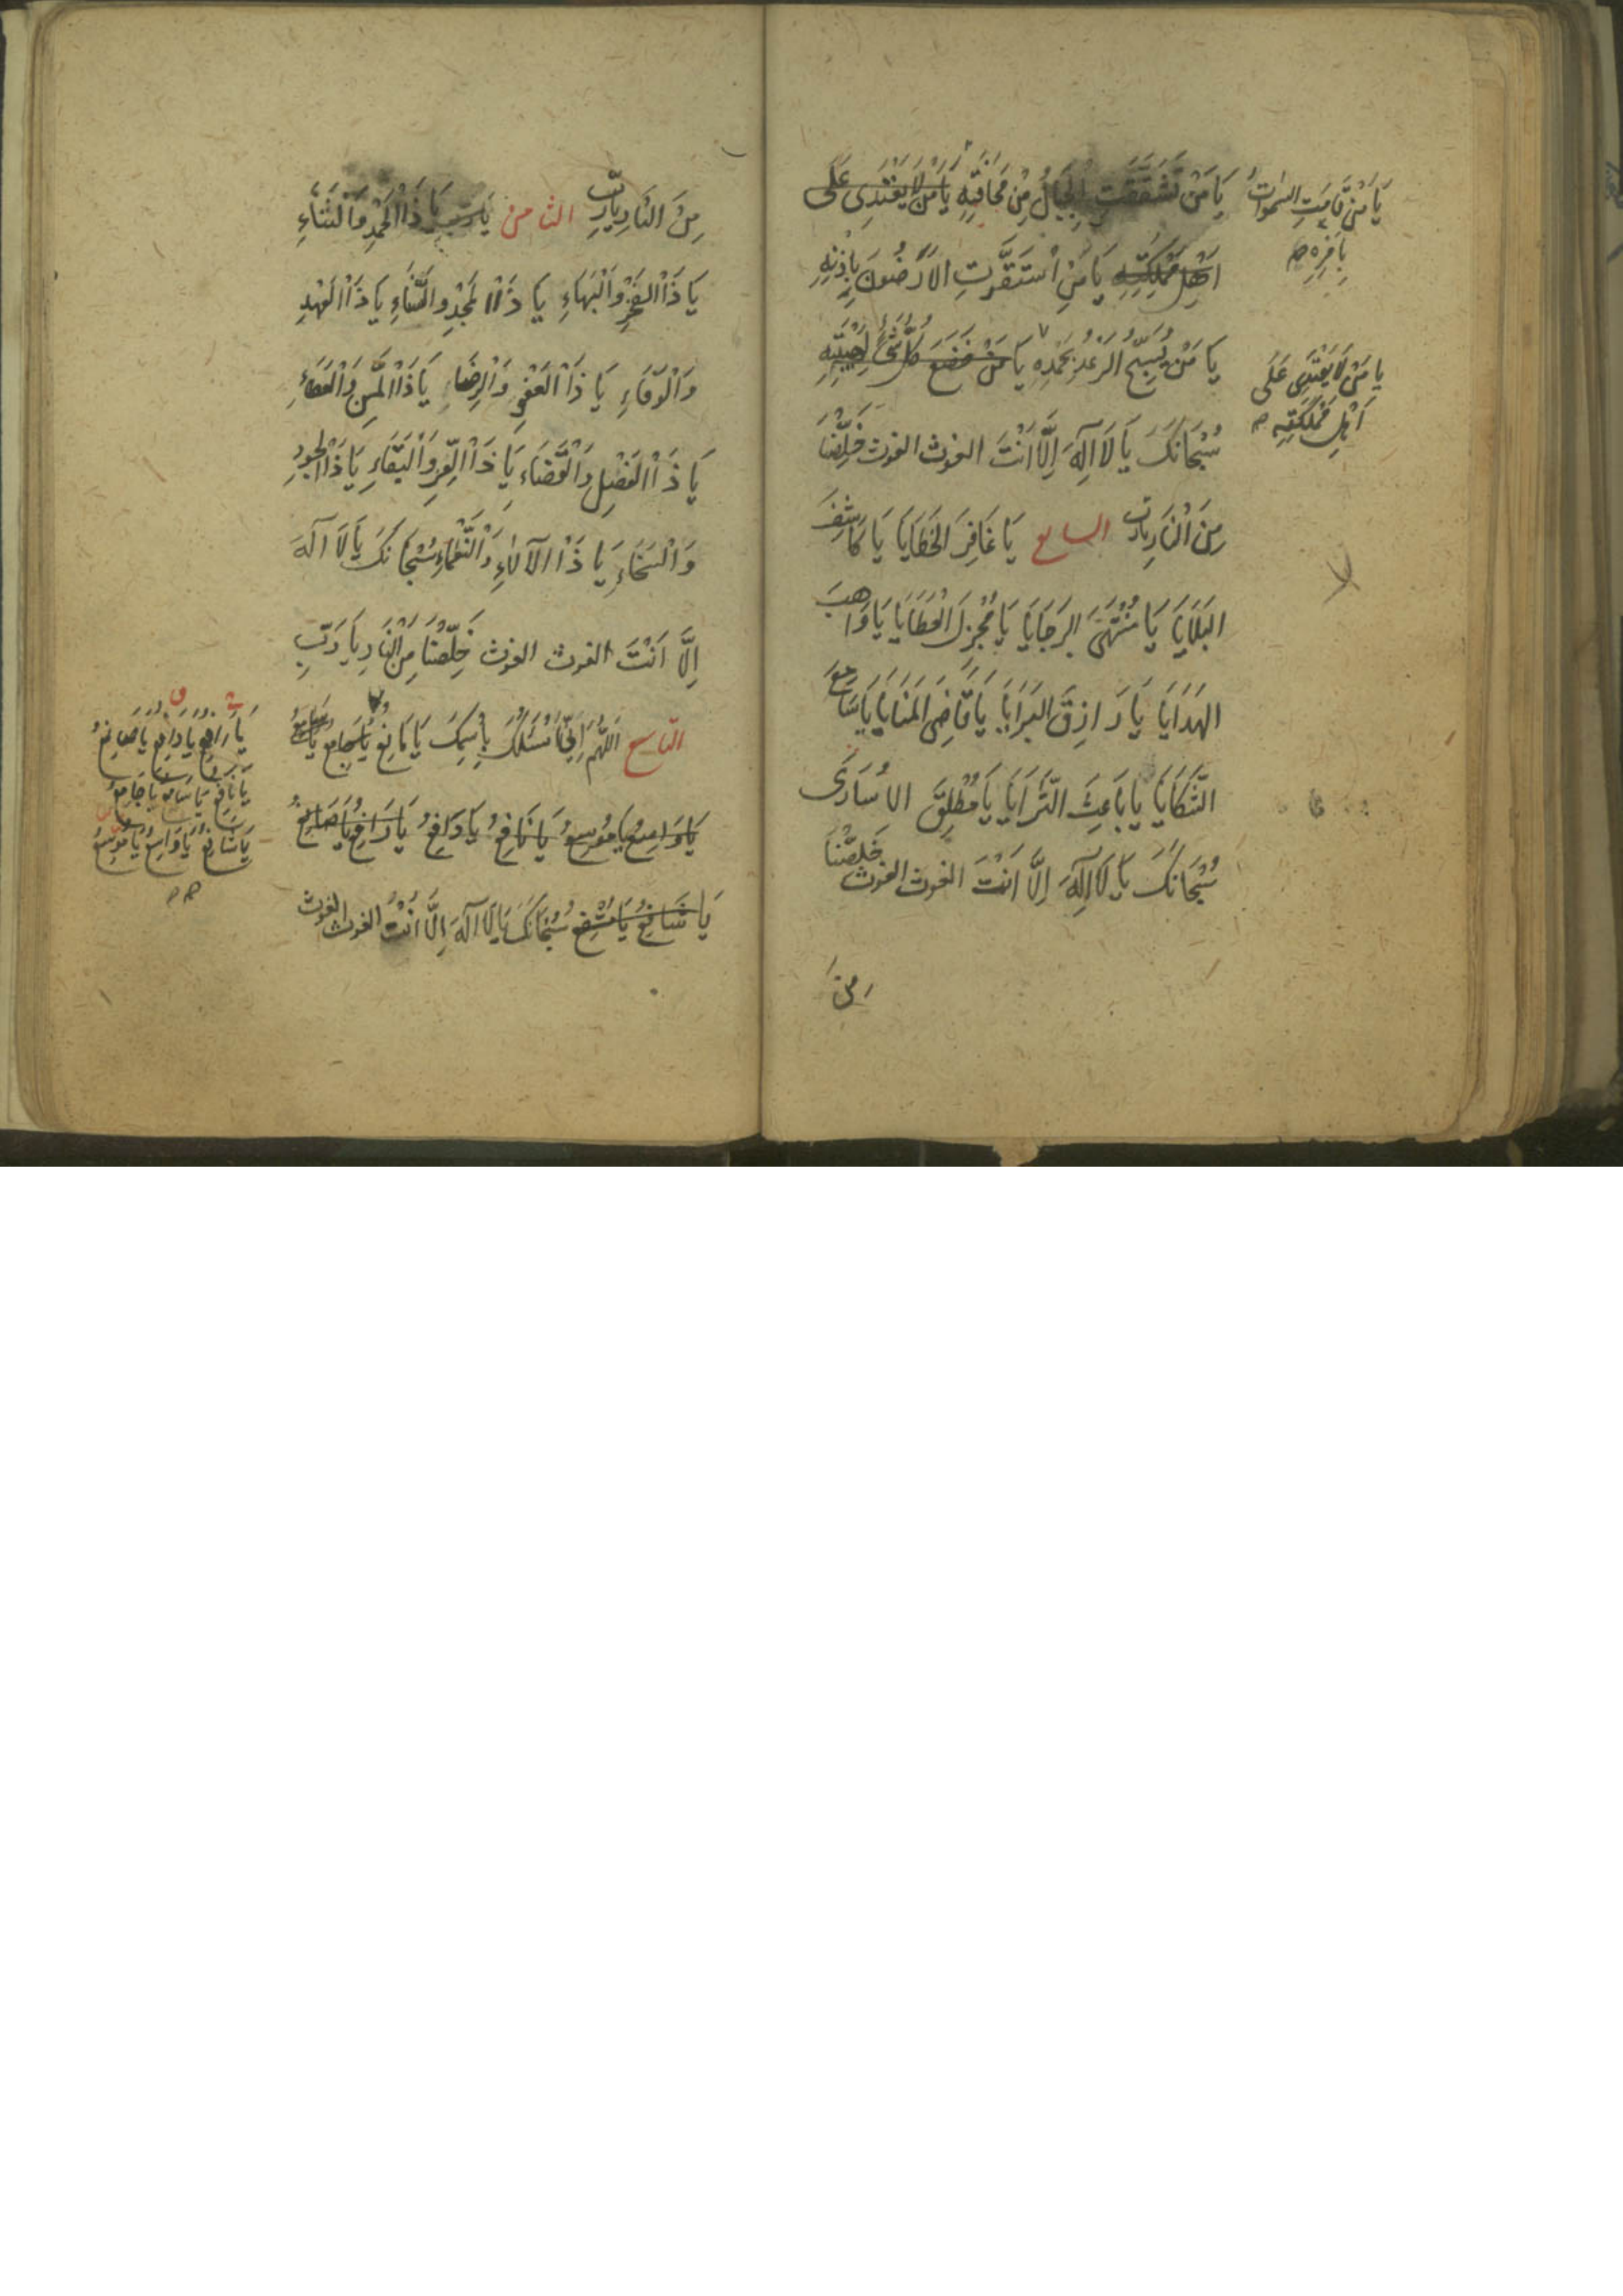 يَا مَنْ تَشَقَّقَتِ الْجِبَالُ مِنْ مَخَافَتِهِ يَا مَنْ لَا يَعْتَدِى عَلَى
اَهْلِ مَمْلَكَتِهِ يَا مَنِ اسْتَقَرَّتِ الْاَرَضُونَ بِاِذْنِهِ
يَا مَنْ يُسَبِّحُ الرَّعْدُ بِحَمْدِهِ يَا مَنْ خَضَعَ كُلُّ شَىْءٍ
سُبْحَانَكَ يَا لَا اِلٰهَ اِلَّا اَنْتَ الغوث الغوث خَلِّصْنَا
مِنَ النَّارِ يَا رَبِّ السابع يَا غَافِرَ الْخَطَايَا يَا كَاشِفَ
الْبَلَايَا يَا مُنْتَهَى الرَّجَايَا يَا مُجْزِلَ الْعَطَايَا يَا وَاهِبَ
الْهَدَايَا يَا رَازِقَ الْبَرَايَا يَا قَاضِىَ الْمَنَايَا يَا سَامِعَ
الشَّكَايَا يَا بَاعِثَ السَّرَايَا يَا مُطْلِقَ الْاُسَارَى
سُبْحَانَكَ يَا لَا اِلٰهَ اِلَّا اَنْتَ الغوث الغوث خَلِّصْنَا
من
يَا مَنْ قَامَتِ السَّمٰوَاتُ
بِاَمْرِهِ
يَا مَنْ لَا يَعْتَدِى عَلَى
اَهْلِ مَمْلَكَتِهِ
مِنَ النَّارِ يَا رَبِّ الثامن يَا رب يَا ذَا الْحَمْدِ وَالثَّنَاءِ
يَا ذَا الْفَخْرِ وَالْبَهَاءِ يَا ذَا الْمَجْدِ وَالسَّنَاءِ يَا ذَا الْعَهْدِ
وَالْوَفَاءِ يَا ذَا الْعَفْوِ وَالرِّضَاءِ يَا ذَا الْمَنِّ وَالْعَطَاءِ
يَا ذَا الْفَضْلِ وَالْقَضَاءِ يَا ذَا الْعِزِّ وَالْبَقَاءِ يَا ذَا الْجُودِ
وَالسَّخَاءِ يَا ذَا الْآلَاءِ وَالنَّعْمَاءِ سُبْحَانَكَ يَا لَا اِلٰهَ
اِلَّا اَنْتَ الغوث الغوث خَلِّصْنَا مِنَ النَّارِ يَا رَبِّ
التاسع اَللّٰهُمَّ اِنِّى اَسْئَلُكَ بِاسْمِكَ يَا مَانِعُ يَا جَامِعُ يَا سَامِعُ
يَا وَاسِعُ يَا مُوسِعُ يَا نَافِعُ يَا دَافِعُ يَا رَافِعُ يَا صَانِعُ
يَا شَافِعُ سُبْحَانَكَ يَا لَا اِلٰهَ اِلَّا اَنْتَ الغوث الغوث
يَا رَافِعُ يَا دَافِعُ يَا صَانِعُ
يَا نَافِعُ يَا سَامِعُ يَا جَامِعُ
يَا شَافِعُ يَا وَاسِعُ يَا مُوسِعُ